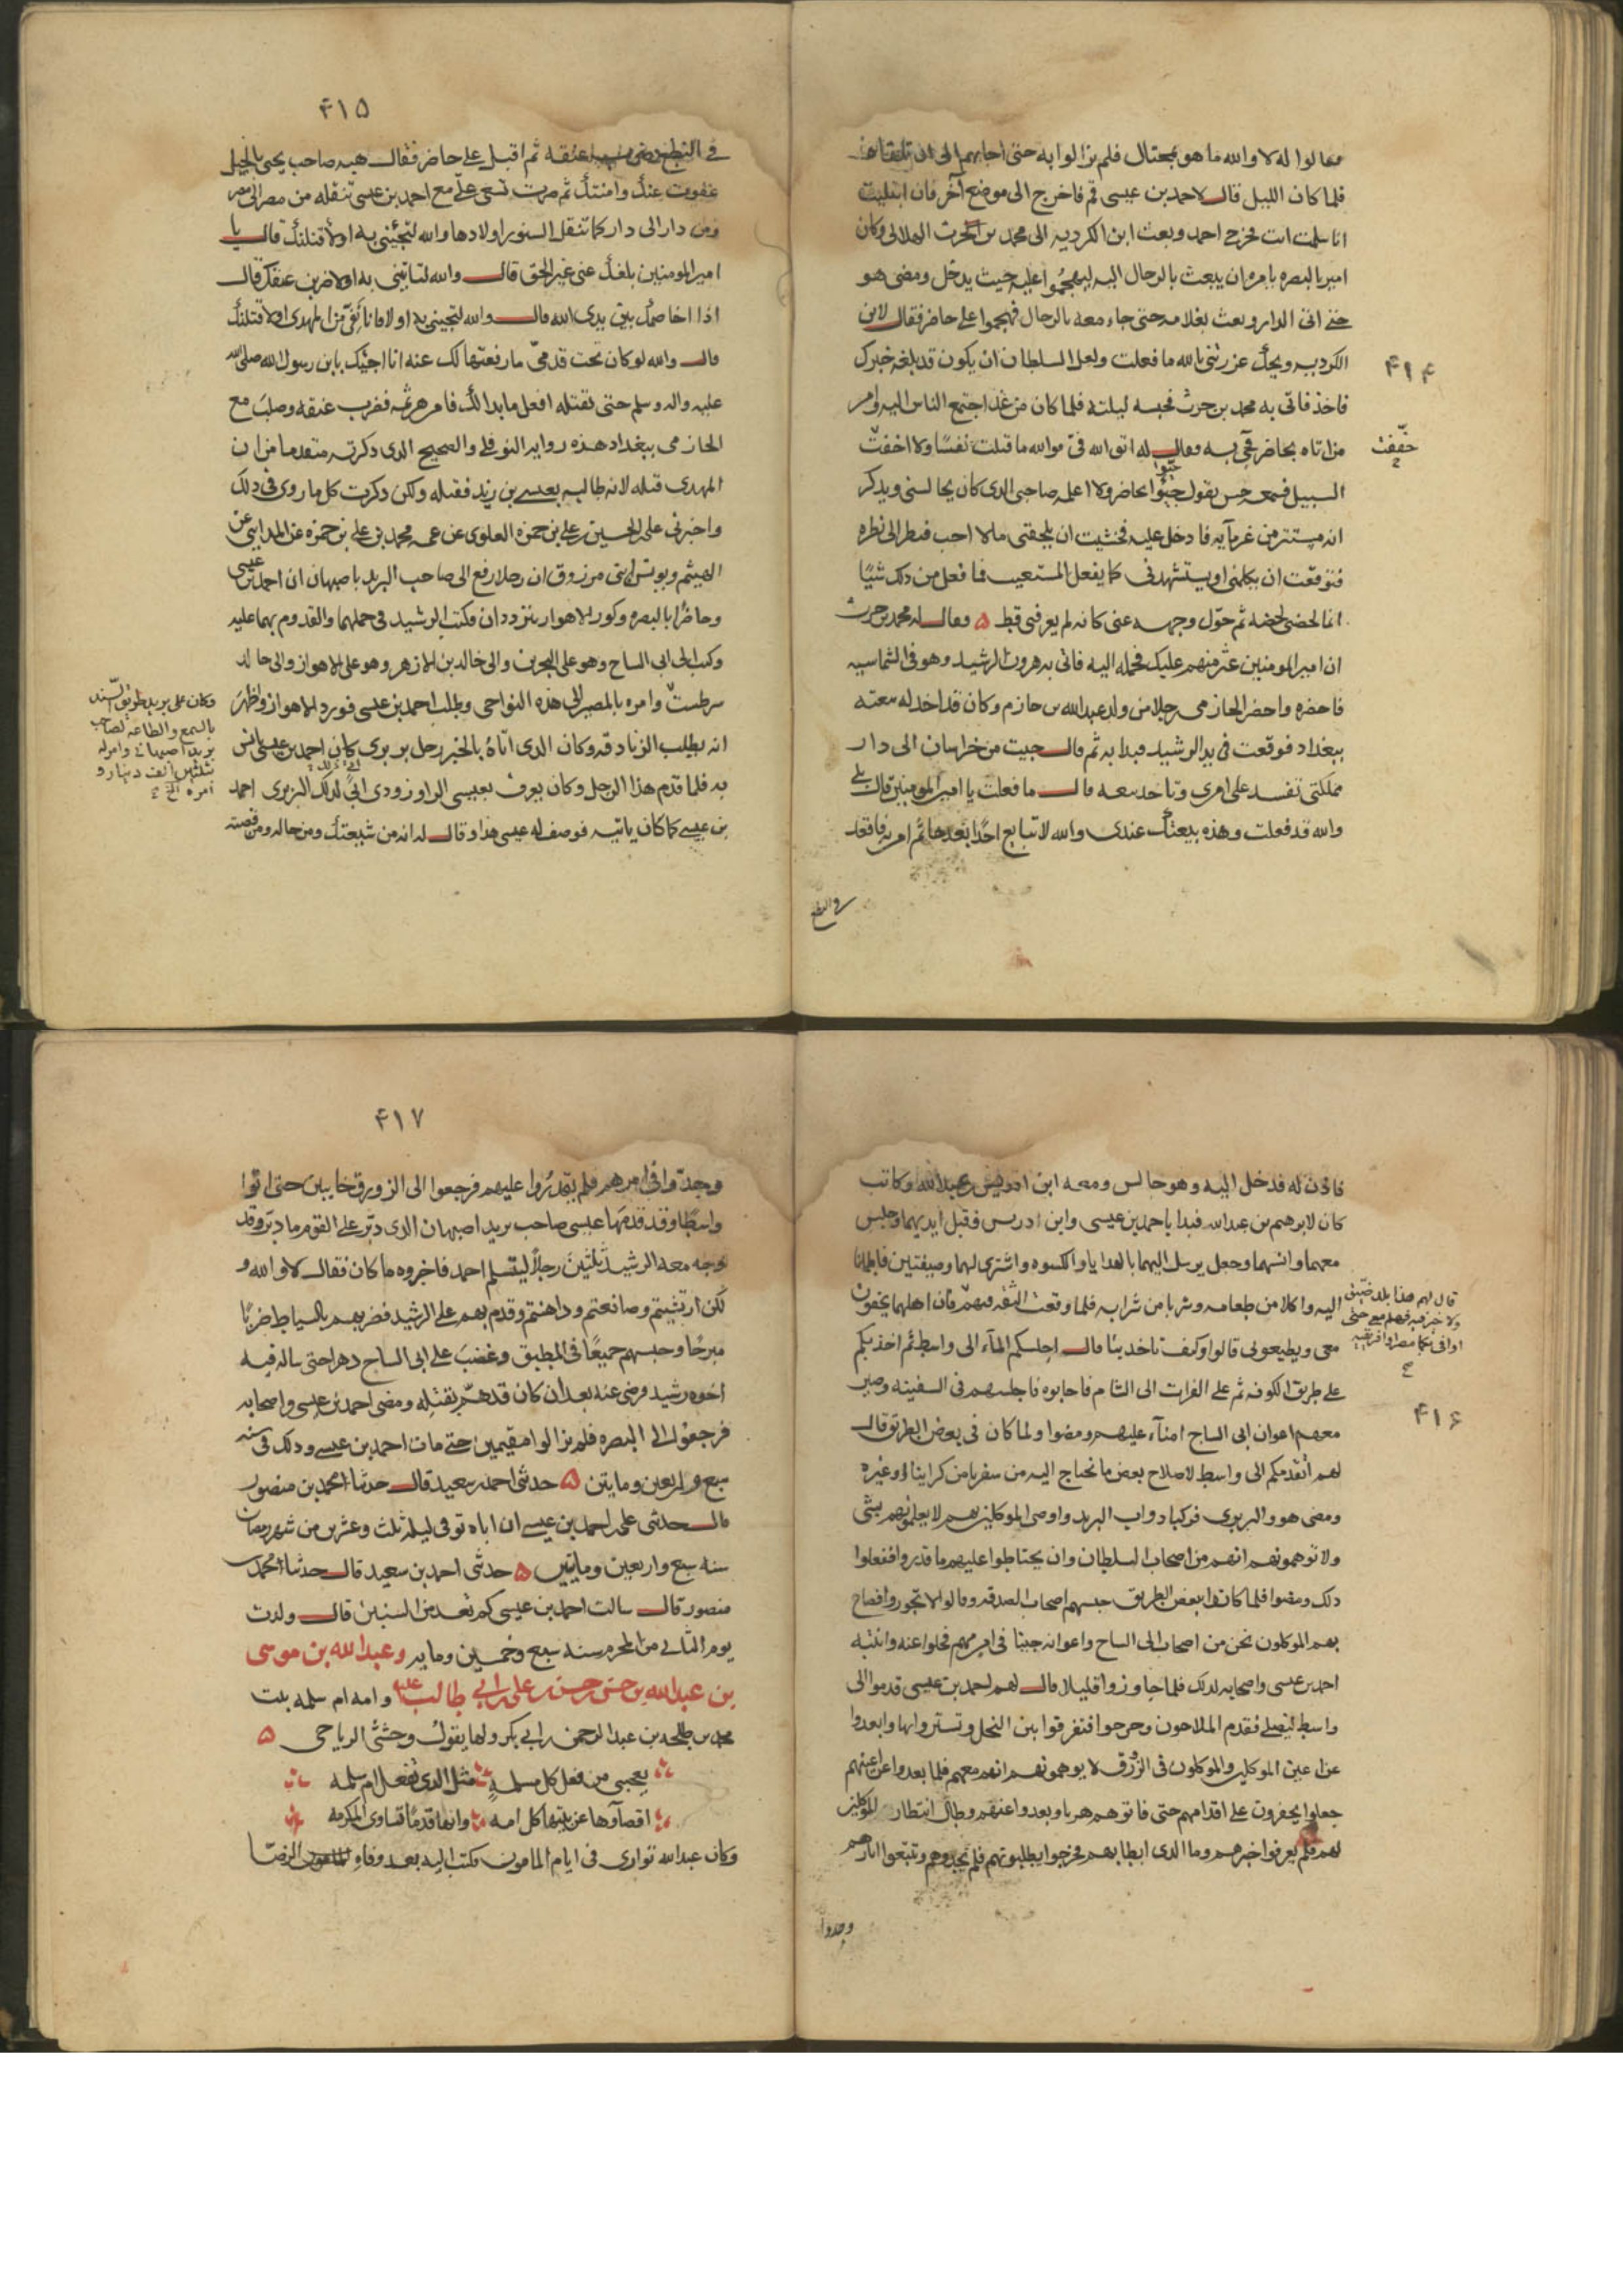 فقالوا له لا والله ما هو بمحتال فلم يزالوا به حتى اجابهم الى ان
فلما كان الليل قال لاحمد بن عيسى قم فاخرج الى موضع آخر فان ابتليت
انا سلمت انت فخرج احمد وبعث ابن الكرديه الى محمد بن الحرث الهلالى وكان
امير بالبصره يامره ان يبعث بالرجال اليه ليهجموا عليه حيث يدخل ومضى هو
حتى اتى الدار وبعث بغلامه حتى جاء معه بالرجال فهجموا على حاضر فقال لابن
الكرديه ويحك عزرتنى بالله ما فعلت ولعل السلطان ان يكون قد بلغه خبرك
۴۱۴
فاخذ فاتى به محمد بن حرث فحبسه ليلته فلما كان من غد اجتمع الناس اليه وامر
من اتاه بحاضر فجىء به وقال له اتق الله فىّ فوالله ما قتلت نفسًا ولا اخفت
خففت
السبيل فسمعه حين يقول جيئوا بحاضر ولا اعلمه صاحبى الذى كان يجالسنى ويذكر
انه مستتر من غرمآيه فادخل عليه فخشيت ان يلحقنى ما لا احب فنظر الى نظره
فتوقعت ان يكلمنى او يستشهدنى كما يفعل المستغيث فما فعل من ذلك شيئًا
انما لحضنى لحضه ثم حوّل وجهه عنى كانه لم يعرفنى قط ۵ وقال له محمد بن حرث
ان امير المومنين غير متهم عليك فحمله اليه فاتى به هرون الرشيد وهو فى الشماسيه
فاحضره واحضر الحازمى رجلا من ولد عبد الله بن حازم وكان قد اخذ له بيعته
ببغداد فوقعت فى يد الرشيد فبدا به ثم قال جيت من خراسان الى دار
مملكتى تفسد على امرى وتاخذ بيعه قال ما فعلت يا امير المومنين قال بلى
والله قد فعلت وهذه بيعتك عندى والله لا تبايع احدًا بعدها ثم امر به فاقعد
فى النطع
۴۱۵
فى النطع وضرب عنقه ثم اقبل على حاضر فقال هيه صاحب يحيى بالجبل
عفوت عنك وامنتك ثم صرت تسعى علىّ مع احمد بن عيسى تنقله من مصر الى مصر
ومن دار الى دار كما تنقل السنور اولادها والله لتجئينى به او لاقتلنك قال يا
امير المومنين بلغك عنى غير الحق قال والله لتاتينى به او لاضربن عنقك قال
اذا اخاصمك بين يدى الله قال والله لتجينى به او لا فانا نفىّ من المهدى او لاقتلنك
قال والله لو كان تحت قدمىّ ما رفعتها لك عنه انا اجيئك بابن رسول الله صلى الله
عليه واله وسلم حتى تقتله افعل ما بدا لك فامر هرثمه فضرب عنقه وصلب مع
الحازمى ببغداد هذه روايه النوفلى والصحيح الذى ذكرته متقدما من ان
المهدى قتله لانه طالبه بعيسى بن زيد فقتله ولكن ذكرت كل ما روى فى ذلك
واخبرنى على بن الحسين بن على بن حمزه العلوى عن عمه محمد بن على بن حمزه عن المداينى عن
الهيثم ويونس بن مرزوق ان رجلا رفع الى صاحب البريد باصبهان ان احمد بن عيسى
وحاضرًا بالبصره وكور الاهواز يترددان فكتب الرشيد فى حملهما والقدوم بهما عليه
وكتب الى ابى الساج وهو على البحرين والى خالد بن الازهر وهو على الاهواز والى خالد
سرطست وامره بالمصير الى هذه النواحى وطلب احمد بن عيسى فورد الاهواز واظهر
وكان على بريد طريق السند
بالسمع والطاعه لصاحب
بريد اصبهان وامر له
بثلثين الف دينار و
امره الخ
انه يطلب الزنادقه وكان الذى اتاهُ بالخبر رجل بربرى كان احمد بن عيسى انس
به فلما قدم هذا الرجل وكان يعرف بعيسى الراوزودى اتى لذلك البربرى احمد
بن عيسى كما كان ياتيه فوصف له عيسى هذا وقال له انه من شيعتك ومن حاله ومن قصته
فاذن له فدخل اليه وهو جالس ومعه ابن ادريس بن عبد الله وكاتب
كان لابرهيم بن عبد الله فبدا باحمد بن عيسى وابن ادريس فقبل ايديهما وجلس
معهما وانسهما وجعل يرسل اليهما بالهدايا والكسوه واشترى لهما وصيفتين فاطمانا
اليه واكلا من طعامه وشربا من شرابه فلما وقعت الثقه
قال لهم هذا بلد ضيق
ولا خير فيه فهلم معى حتى
اوافى بكما مصر وافريقيه
معى ويطيعونى قالوا وكيف تاخذ بنا قال اجلسكم المآء الى واسط ثم اخذ بكم
على طريق الكوفه ثم على الفرات الى الشام فاجابوه فاجلسهم فى السفينه وصير
۴۱۶
معهم اعوان ابى الساج امنآء عليهم ومضوا ولما كان فى بعض الطريق قال
لهم اتقدمكم الى واسط لاصلاح بعض ما نحتاج اليه من سفرنا من كرا بنا او غيره
ومضى هو والبربرى فركبا دواب البريد واوصى الموكلين بهم لا يعلمونهم بشى
ولا توهمونهم انهم من اصحاب السلطان وان يحتاطوا عليهم ما قدروا ففعلوا
ذلك ومضوا فلما كانوا ببعض الطريق حبسهم اصحاب الصدقه وقالوا لا تجوزوا فصاح
بهم الموكلون نحن من اصحاب ابى الساج واعوانه جينا فى امر مهم فخلوا عنه وانتبه
احمد بن عيسى واصحابه لذلك فلما جاوزوا قليلا قال لهم احمد بن عيسى قدموا الى
واسط لنصلى فقدم الملاحون وخرجوا فتفرقوا بين النخل وتستروا بها وابعدوا
عن اعين الموكلين والموكلون فى الزورق لا يوهمونهم انهم معهم فلما بعدوا عن اعينهم
جعلوا يحفرون على اقدامهم حتى فاتوهم هربا وبعدوا عنهم وطال انتظار الموكلين
لهم فلم يعرفوا خبرهم وما الذى ابطا بهم فخرجوا يطلبونهم فلم يجدوهم وتتبعوا اثارهم
وجدوا
۴۱۷
وجدّوا فى امرهم فلم يقدرُوا عليهم فرجعوا الى الزورق خايبين حتى اتوا
واسطًا وقد قدمَهَا عيسى صاحب بريد اصبهان الذى دبّر على القوم ما دبّر وقد
وجه معه الرشيد ثلثينَ رجلاً ليتسلم احمد فاخبروه ما كان فقال لا والله و
لكن ارتشيتم وصانعتم وداهنتم وقدم بهم على الرشيد فضربهم بالسياط ضربًا
مبرحًا وحبسهم جميعًا فى المطبق وغضب على ابى الساج دهرا حتى ساله فيه
اخوه رشيد ورضى عنه بعد ان كان قد همّ بقتله ومضى احمد بن عيسى واصحابه
فرجعوا الى البصره فلم يزالوا مقيمين حتى مات احمد بن عيسى وذلك فى سنه
سبع واربعين ومايتين ۵ حدثنى احمد بن سعيد قال حدثنا محمد بن منصور
قال حدثنى على بن احمد بن عيسى ان اباه توفى ليلة ثلث وعشرين من شهر رمضان
سنه سبع واربعين ومايتين ۵ حدثنى احمد بن سعيد قال حدثنا محمد بن
منصور قال سالت احمد بن عيسى كم تعد من السنين قال ولدت
يوم الثانى من المحرم سنه سبع وخمسين ومايه وعبد الله بن موسى
بن عبد الله بن حسن بن حسن بن على بن ابى طالب ع وامه ام سلمه بنت
محمد بن طلحه بن عبد الرحمن بن ابى بكر ولها يقول وحشى الرياحى ۵
يعجبنى من فعل كل مسلمةٍ مثل الذى تفعل ام سلمه
اقصآوها عن بيتها كل امه وانها قدمًا تساوى المكرمه
وكان عبد الله توارى فى ايام المامون فكتب اليه بعد وفاهِ الرضا